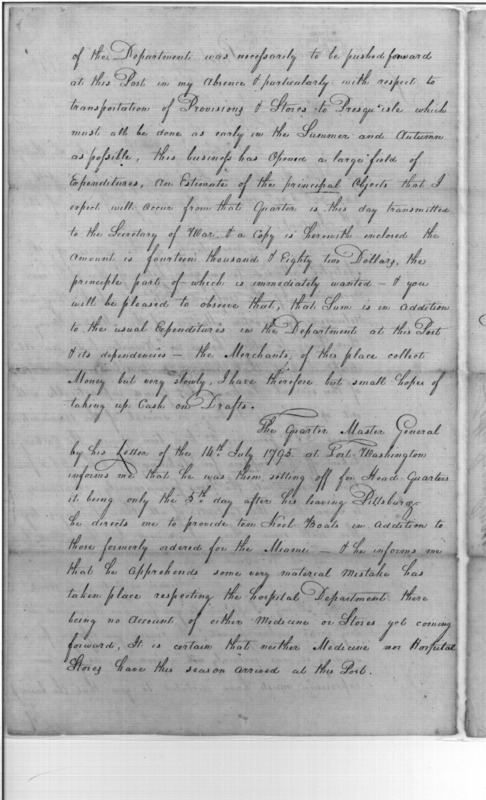 of the Department was necessarily to be pushed forward
at this Post in my absence & particularly with respect to
transportation of Provisions & Stores to Presqu'isle which
must all be done as early in the Summer and Autumn
as possible, this business has opened a large field of
Expenditures, An Estimate of the principal Objects that I
expect will occur from that Quarter is this day transmitted
to the Secretary of War & a Copy is herewith enclosed the
amount is fourteen thousand & Eighty two Dollars, the
principle part of which is immediately wanted — & you
will be pleased to observe that, that Sum is in addition
to the usual Expenditures in the Department at this Post
& its dependencies — the Merchants, of this place collect
Money but very slowly, I have therefore but small hopes of
taking up Cash on Drafts.
The Quarter Master General
by his Letter of the 14th July 1795 at Fort Washington
informs me that he was then setting off for Head Quarters
it being only the 5th day after his leaving Pittsburg
he directs me to provide ten Keel Boats in addition to
those formerly ordered for the Miami — & he informs me
that he apprehends some very material mistake has
taken place respecting the hospital Department there
being no Account of either Medicine or Stores yet coming
forward, It is certain that neither Medicine nor Hospital
Stores have this season arrived at this Post.